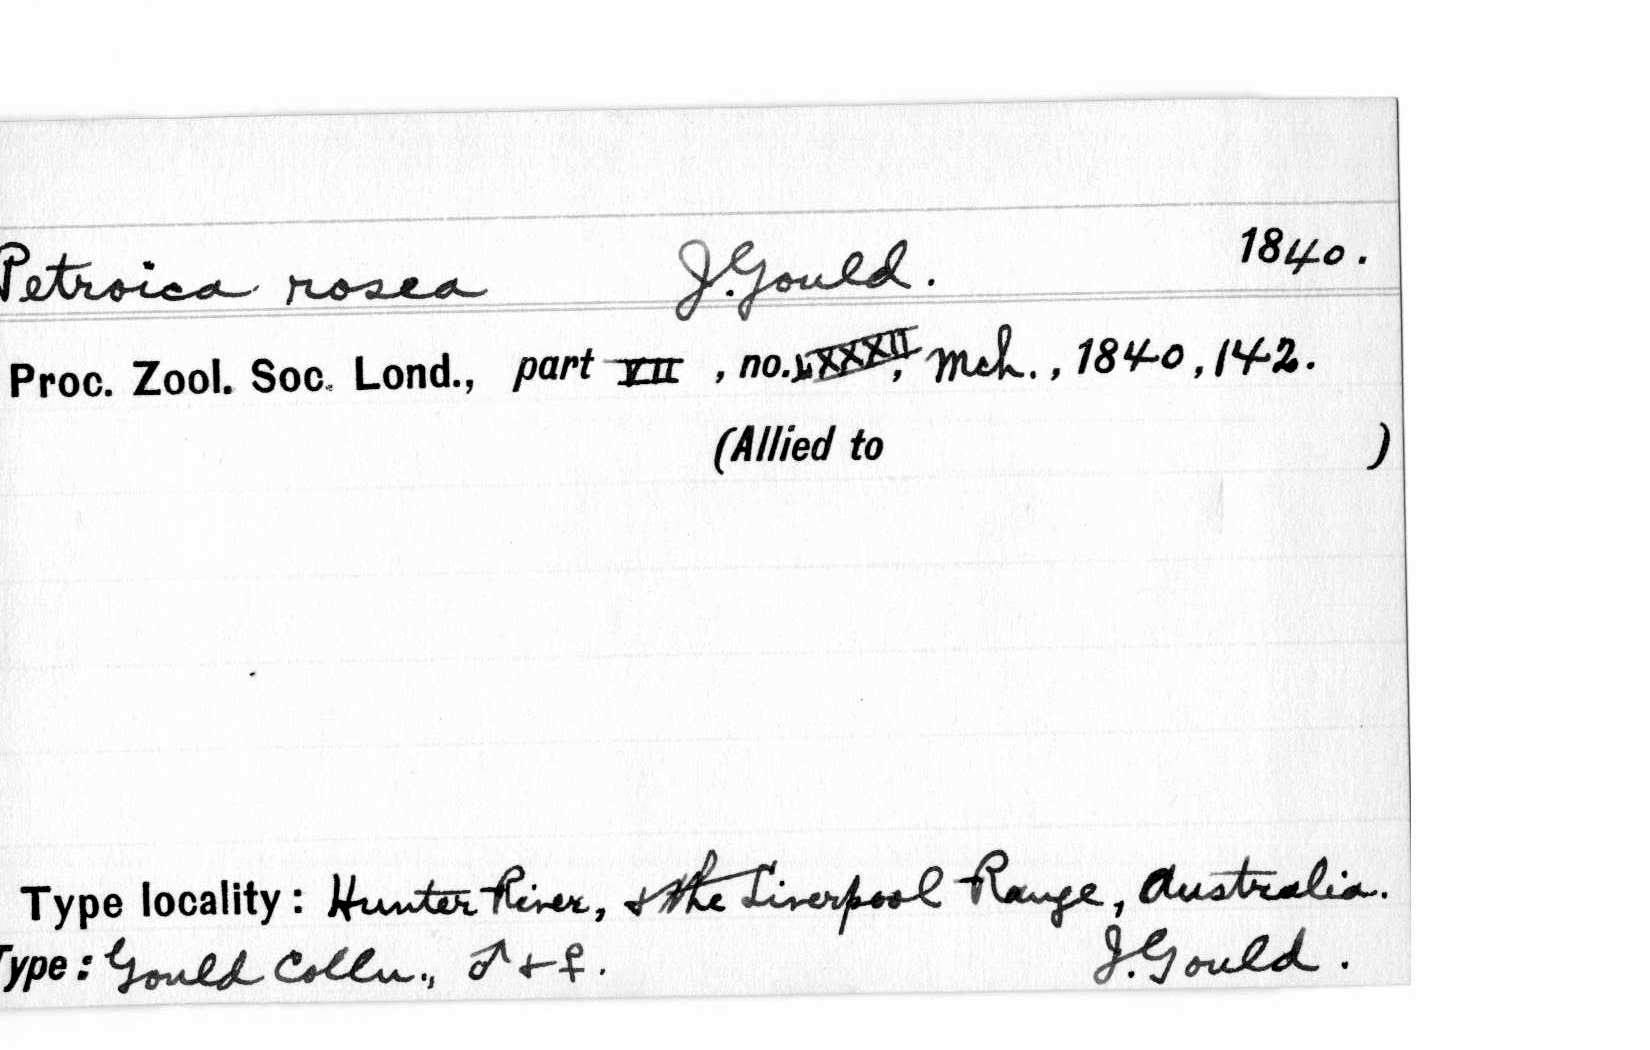 Petroica rosea J. Gould. 1840.
Proc. Zool. Soc. Lond., part VII, no. LXXXII, Mch., 1840, 142.
(Allied to )
Type locality: Hunter River, & the Liverpool Range, Australia.
Type: Gould Colln., ♂ & ♀. J. Gould.